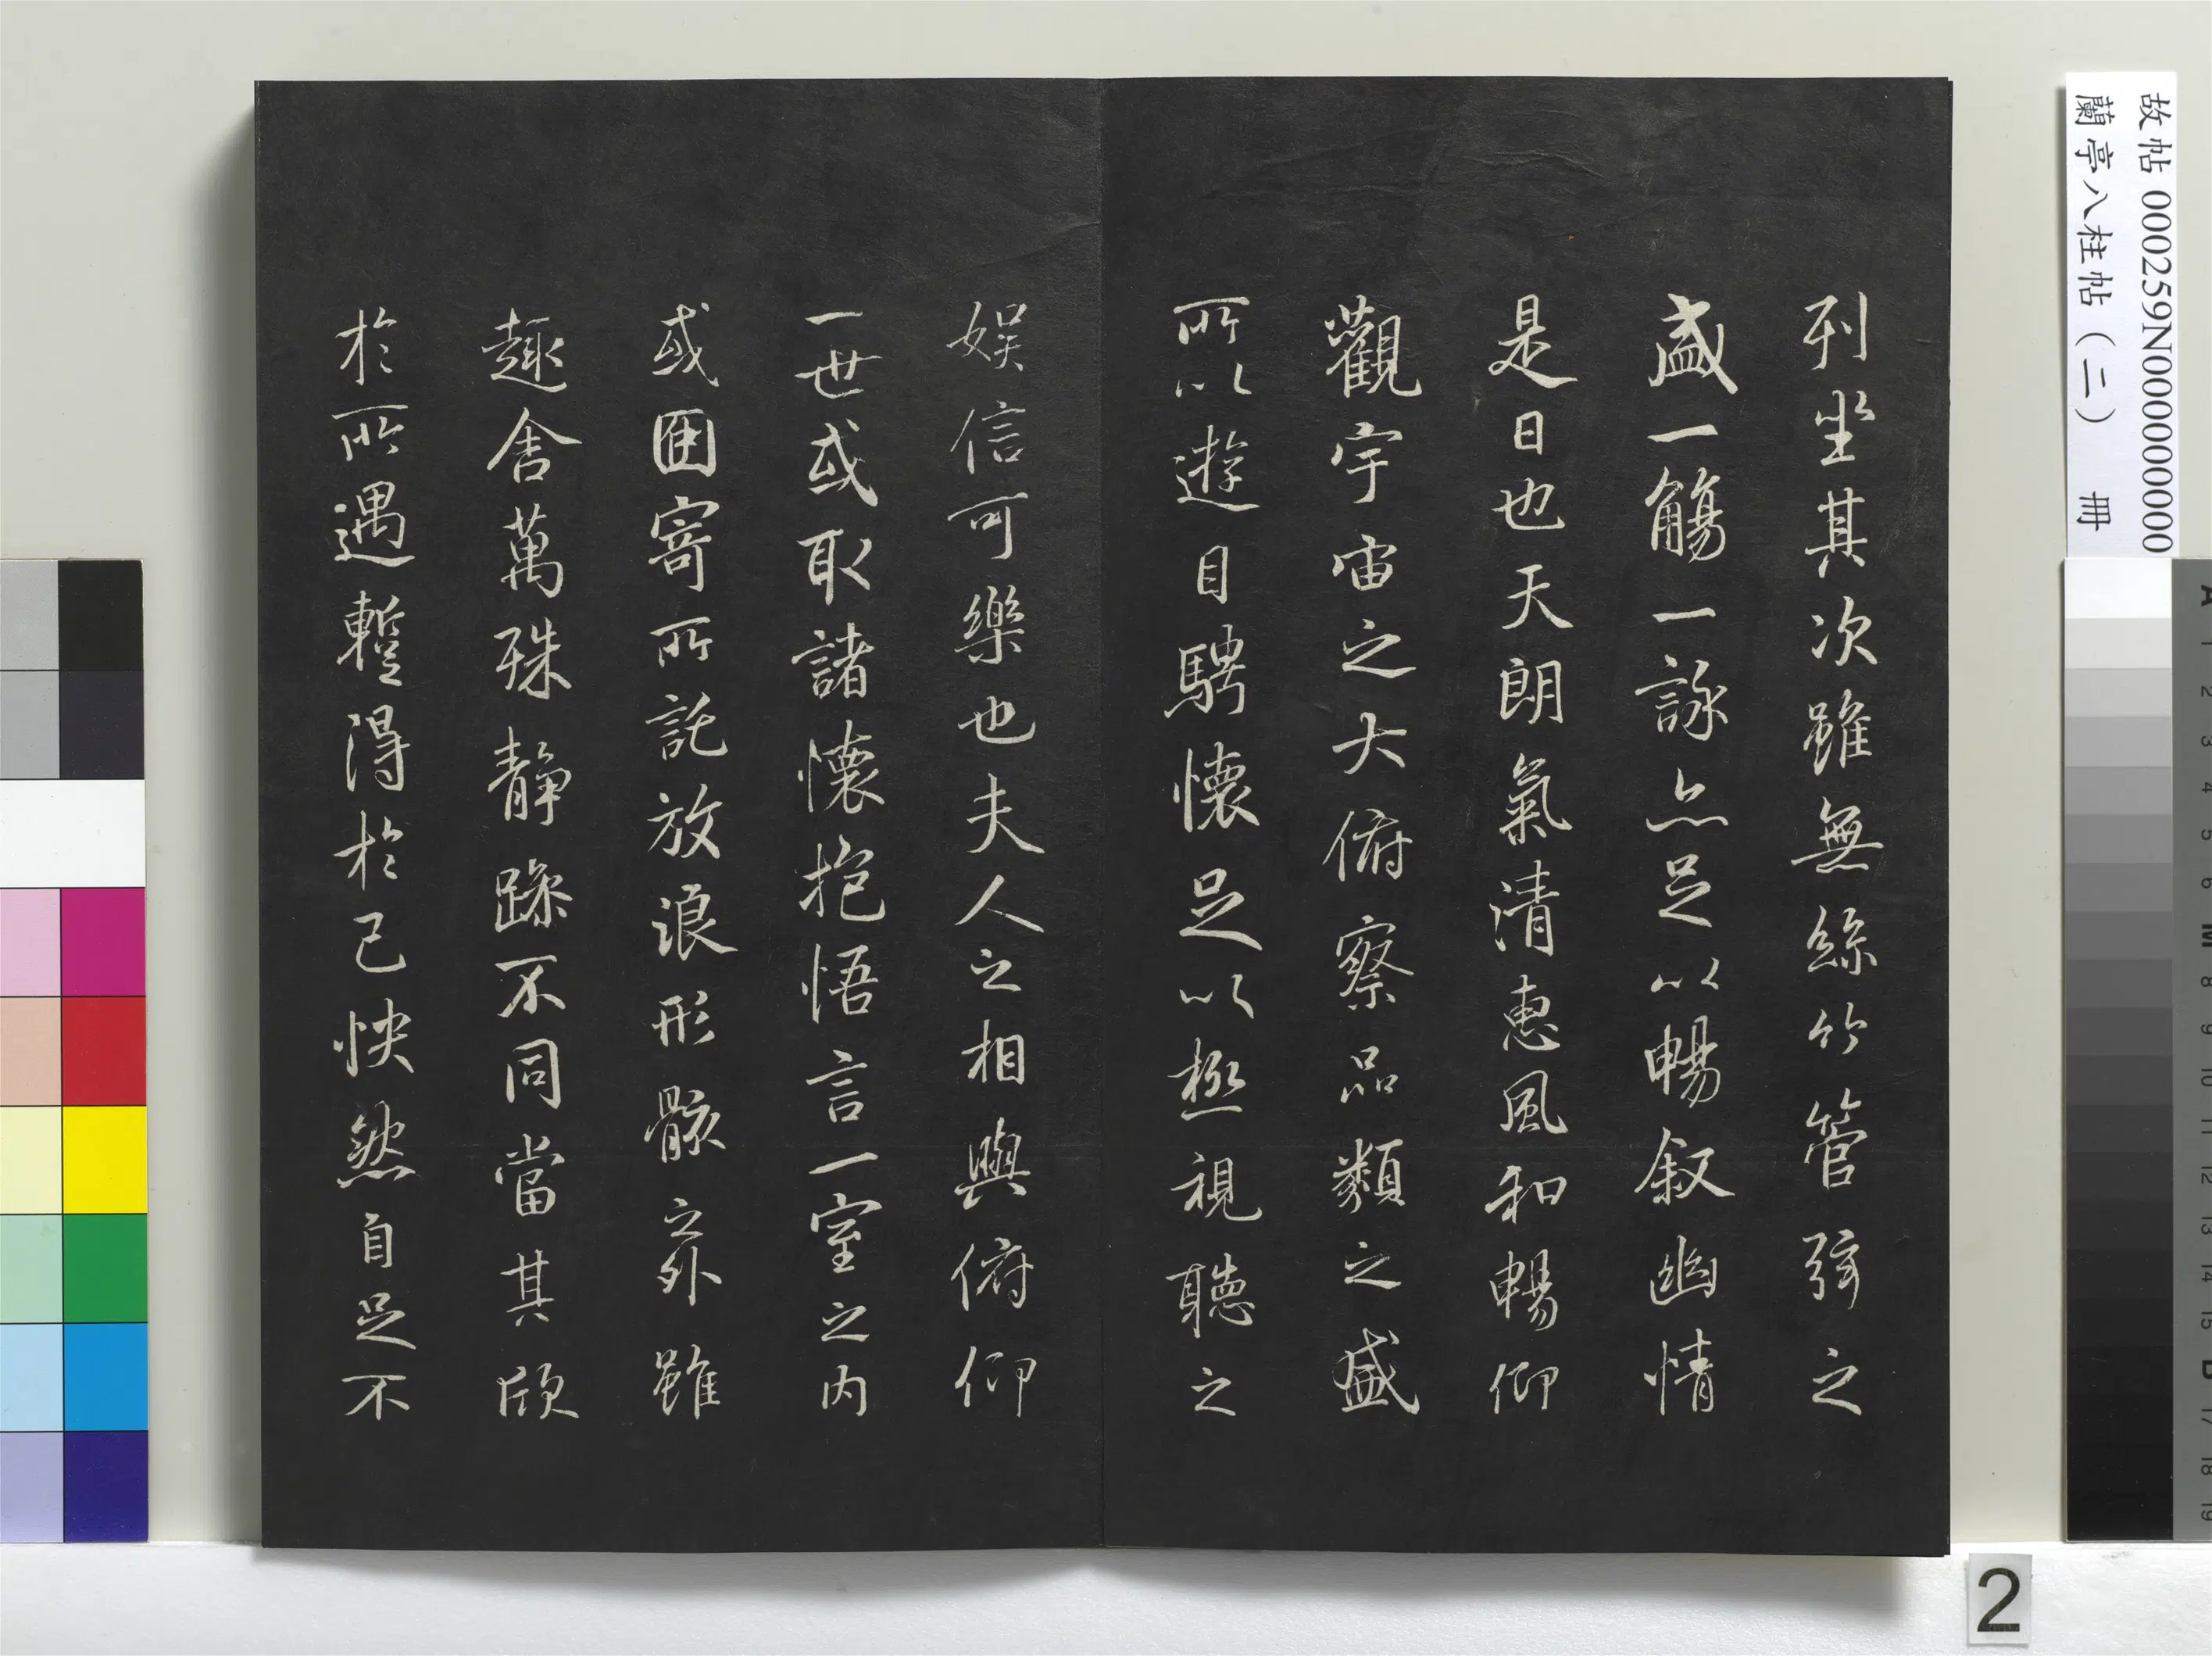 列坐其次雖無絲竹管弦之
盛一觴一詠亦足以暢叙幽情
是日也天朗氣清惠風和暢仰
觀宇宙之大俯察品類之盛
所以遊目騁懷足以極視聽之
娛信可樂也夫人之相與俯仰
一世或取諸懷抱悟言一室之內
或因寄所託放浪形骸之外雖
趣舍萬殊靜躁不同當其欣
於所遇蹔得於己怏然自足不
故帖 000259N000000000
蘭亭八柱帖(二) 冊
A 1 2 3 4 5 6 M 8 9 10 11 12 13 14 15 B 17 18 19
2